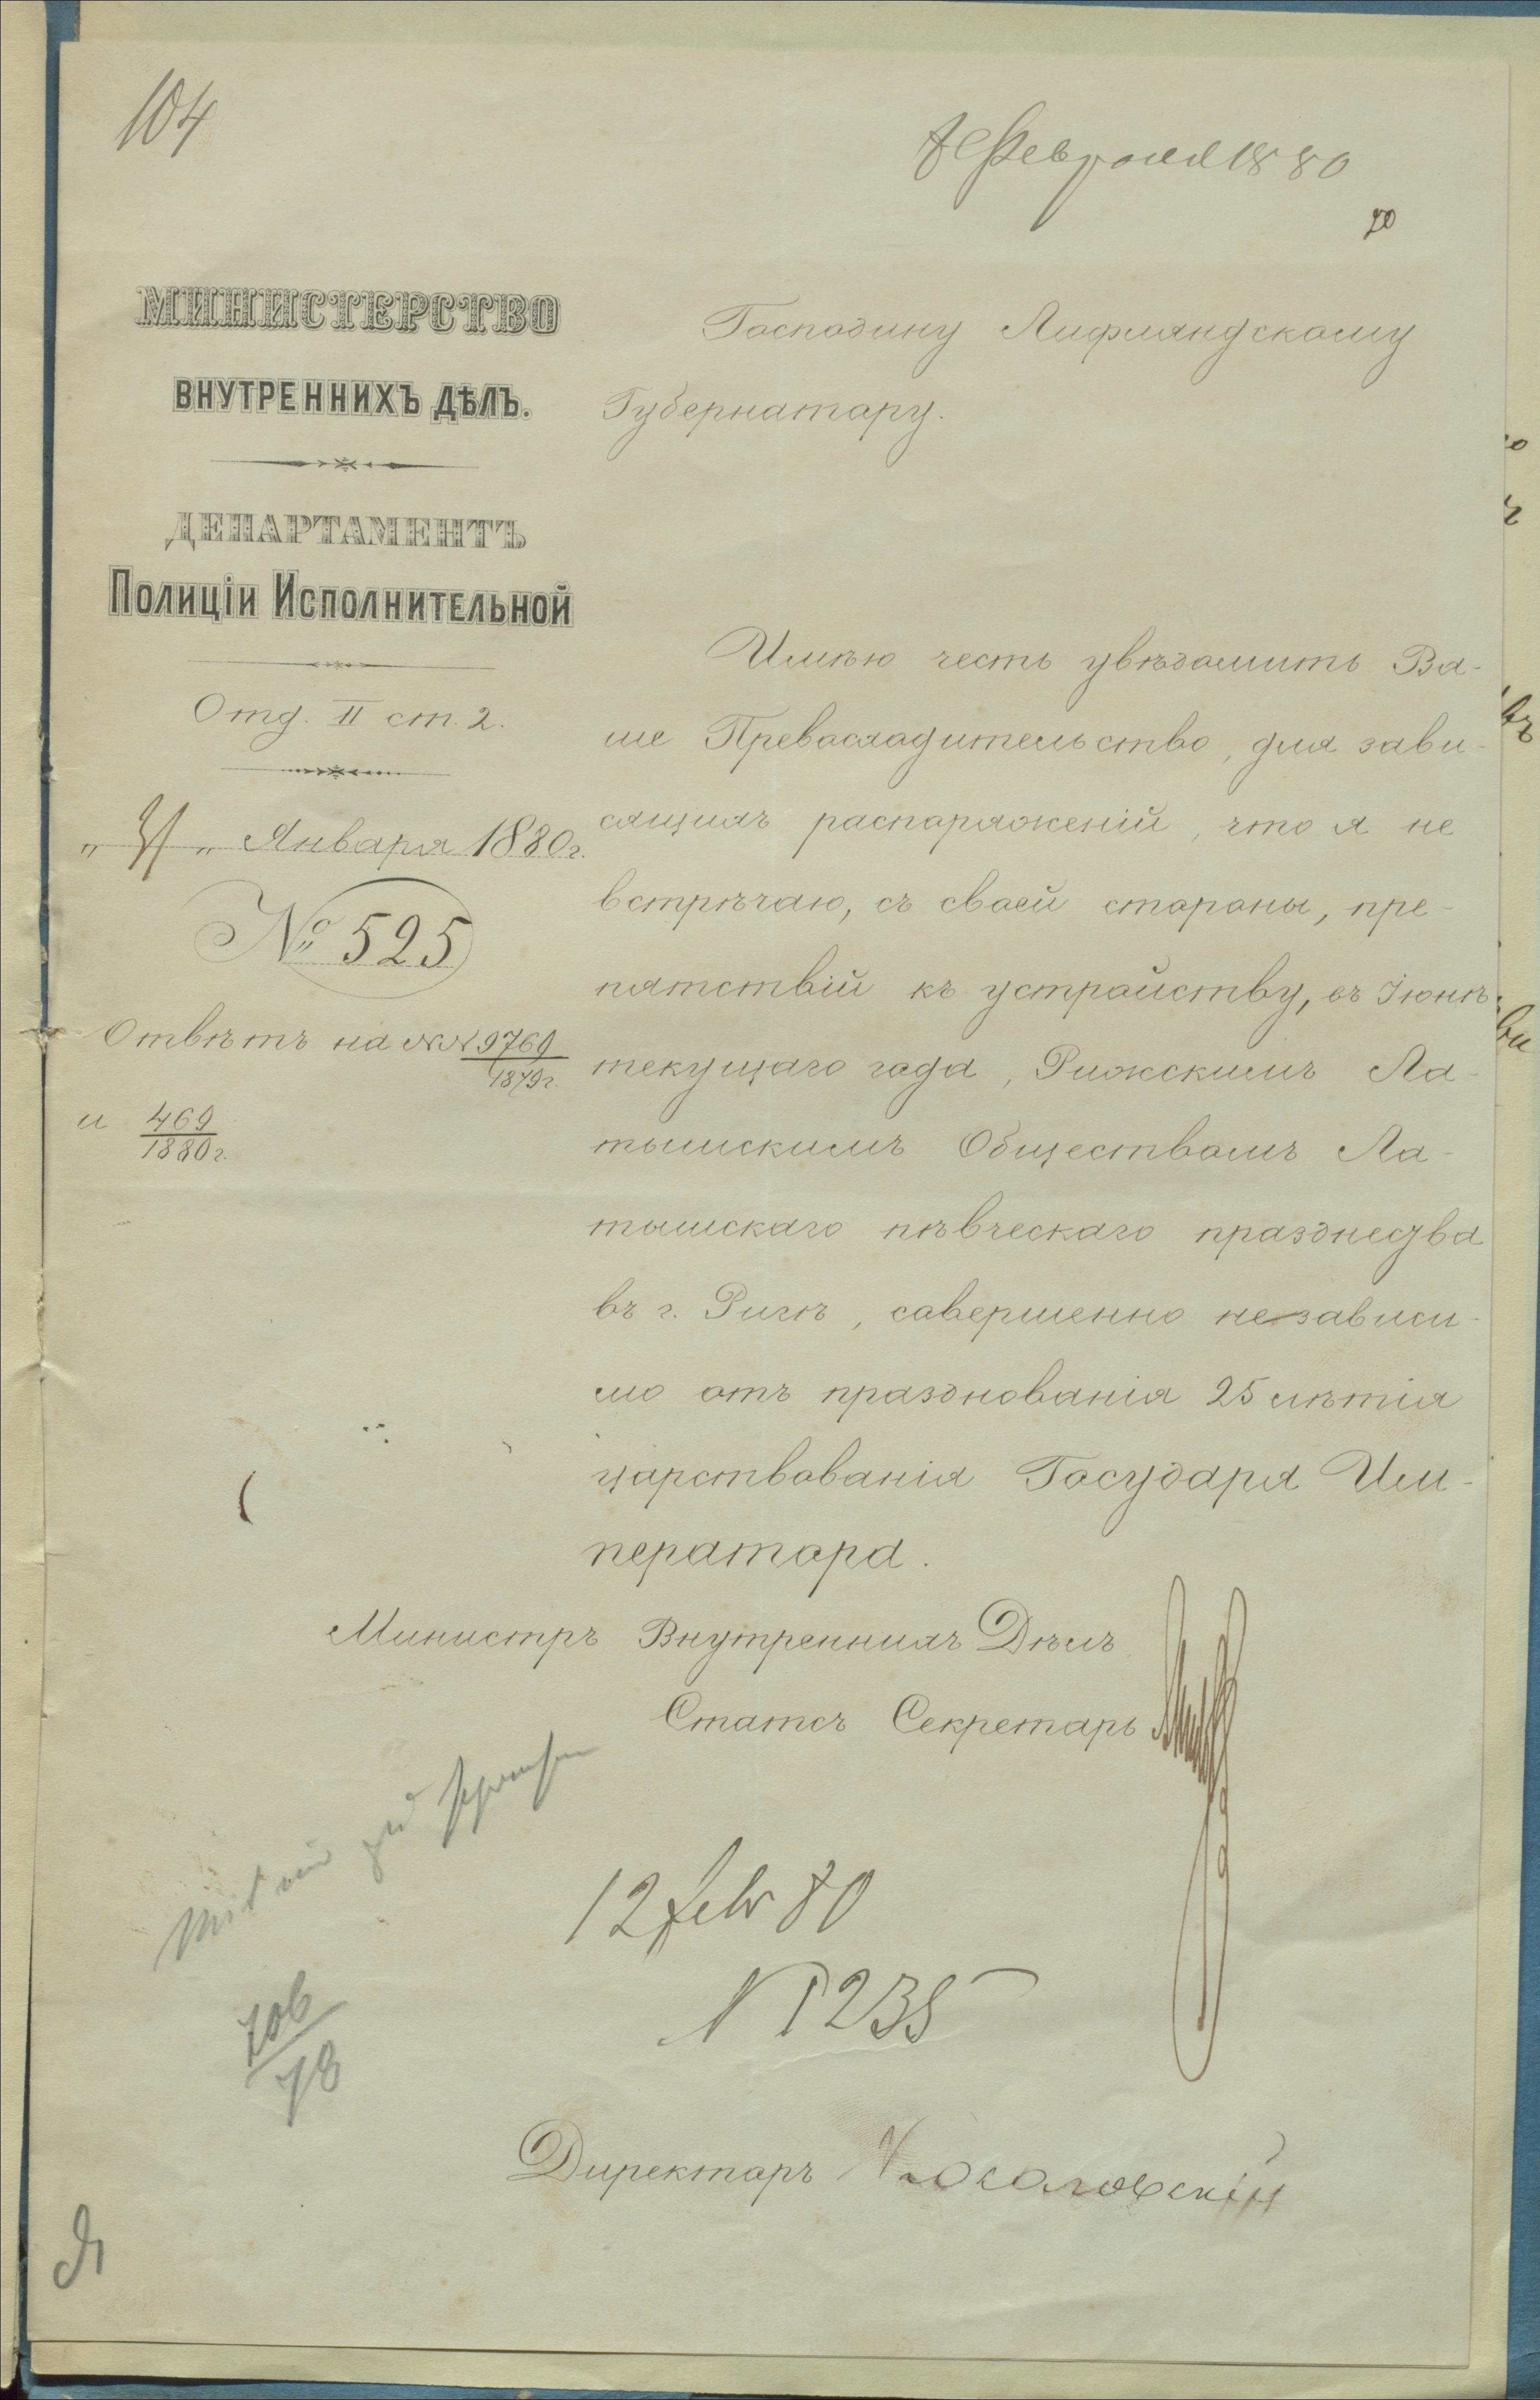 104
Февраля 1880
МИНИСТЕРСТВО
ВНУТРЕННИХЪ ДѢЛЪ.
ДЕПАРТАМЕНТЪ
Полиціи Исполнительной
Отд. II ст. 2.
„31„ Января 1880г.
№ 525
Отвѣтъ на №№ 9769/1879г.
и 469/1880г.
Господину Лифляндскому
Губернатору.
Имѣю честь увѣдомить Ва-
ше Превосходительство, для зави-
сящихъ распоряженій, что я не
встрѣчаю, съ своей стороны, пре-
пятствій къ устройству, въ Іюнѣ
текущаго года, Рижскимъ Ла-
тышскимъ Обществомъ Ла-
тышскаго пѣвческаго празднества
въ г. Ригѣ, совершенно независи-
мо отъ празднованія 25 лѣтія
царствованія Государя Им-
ператора.
Министръ Внутреннихъ Дѣлъ
Статсъ Секретарь
12 febr 80
N 1235
706/78
Директоръ Косаговскій